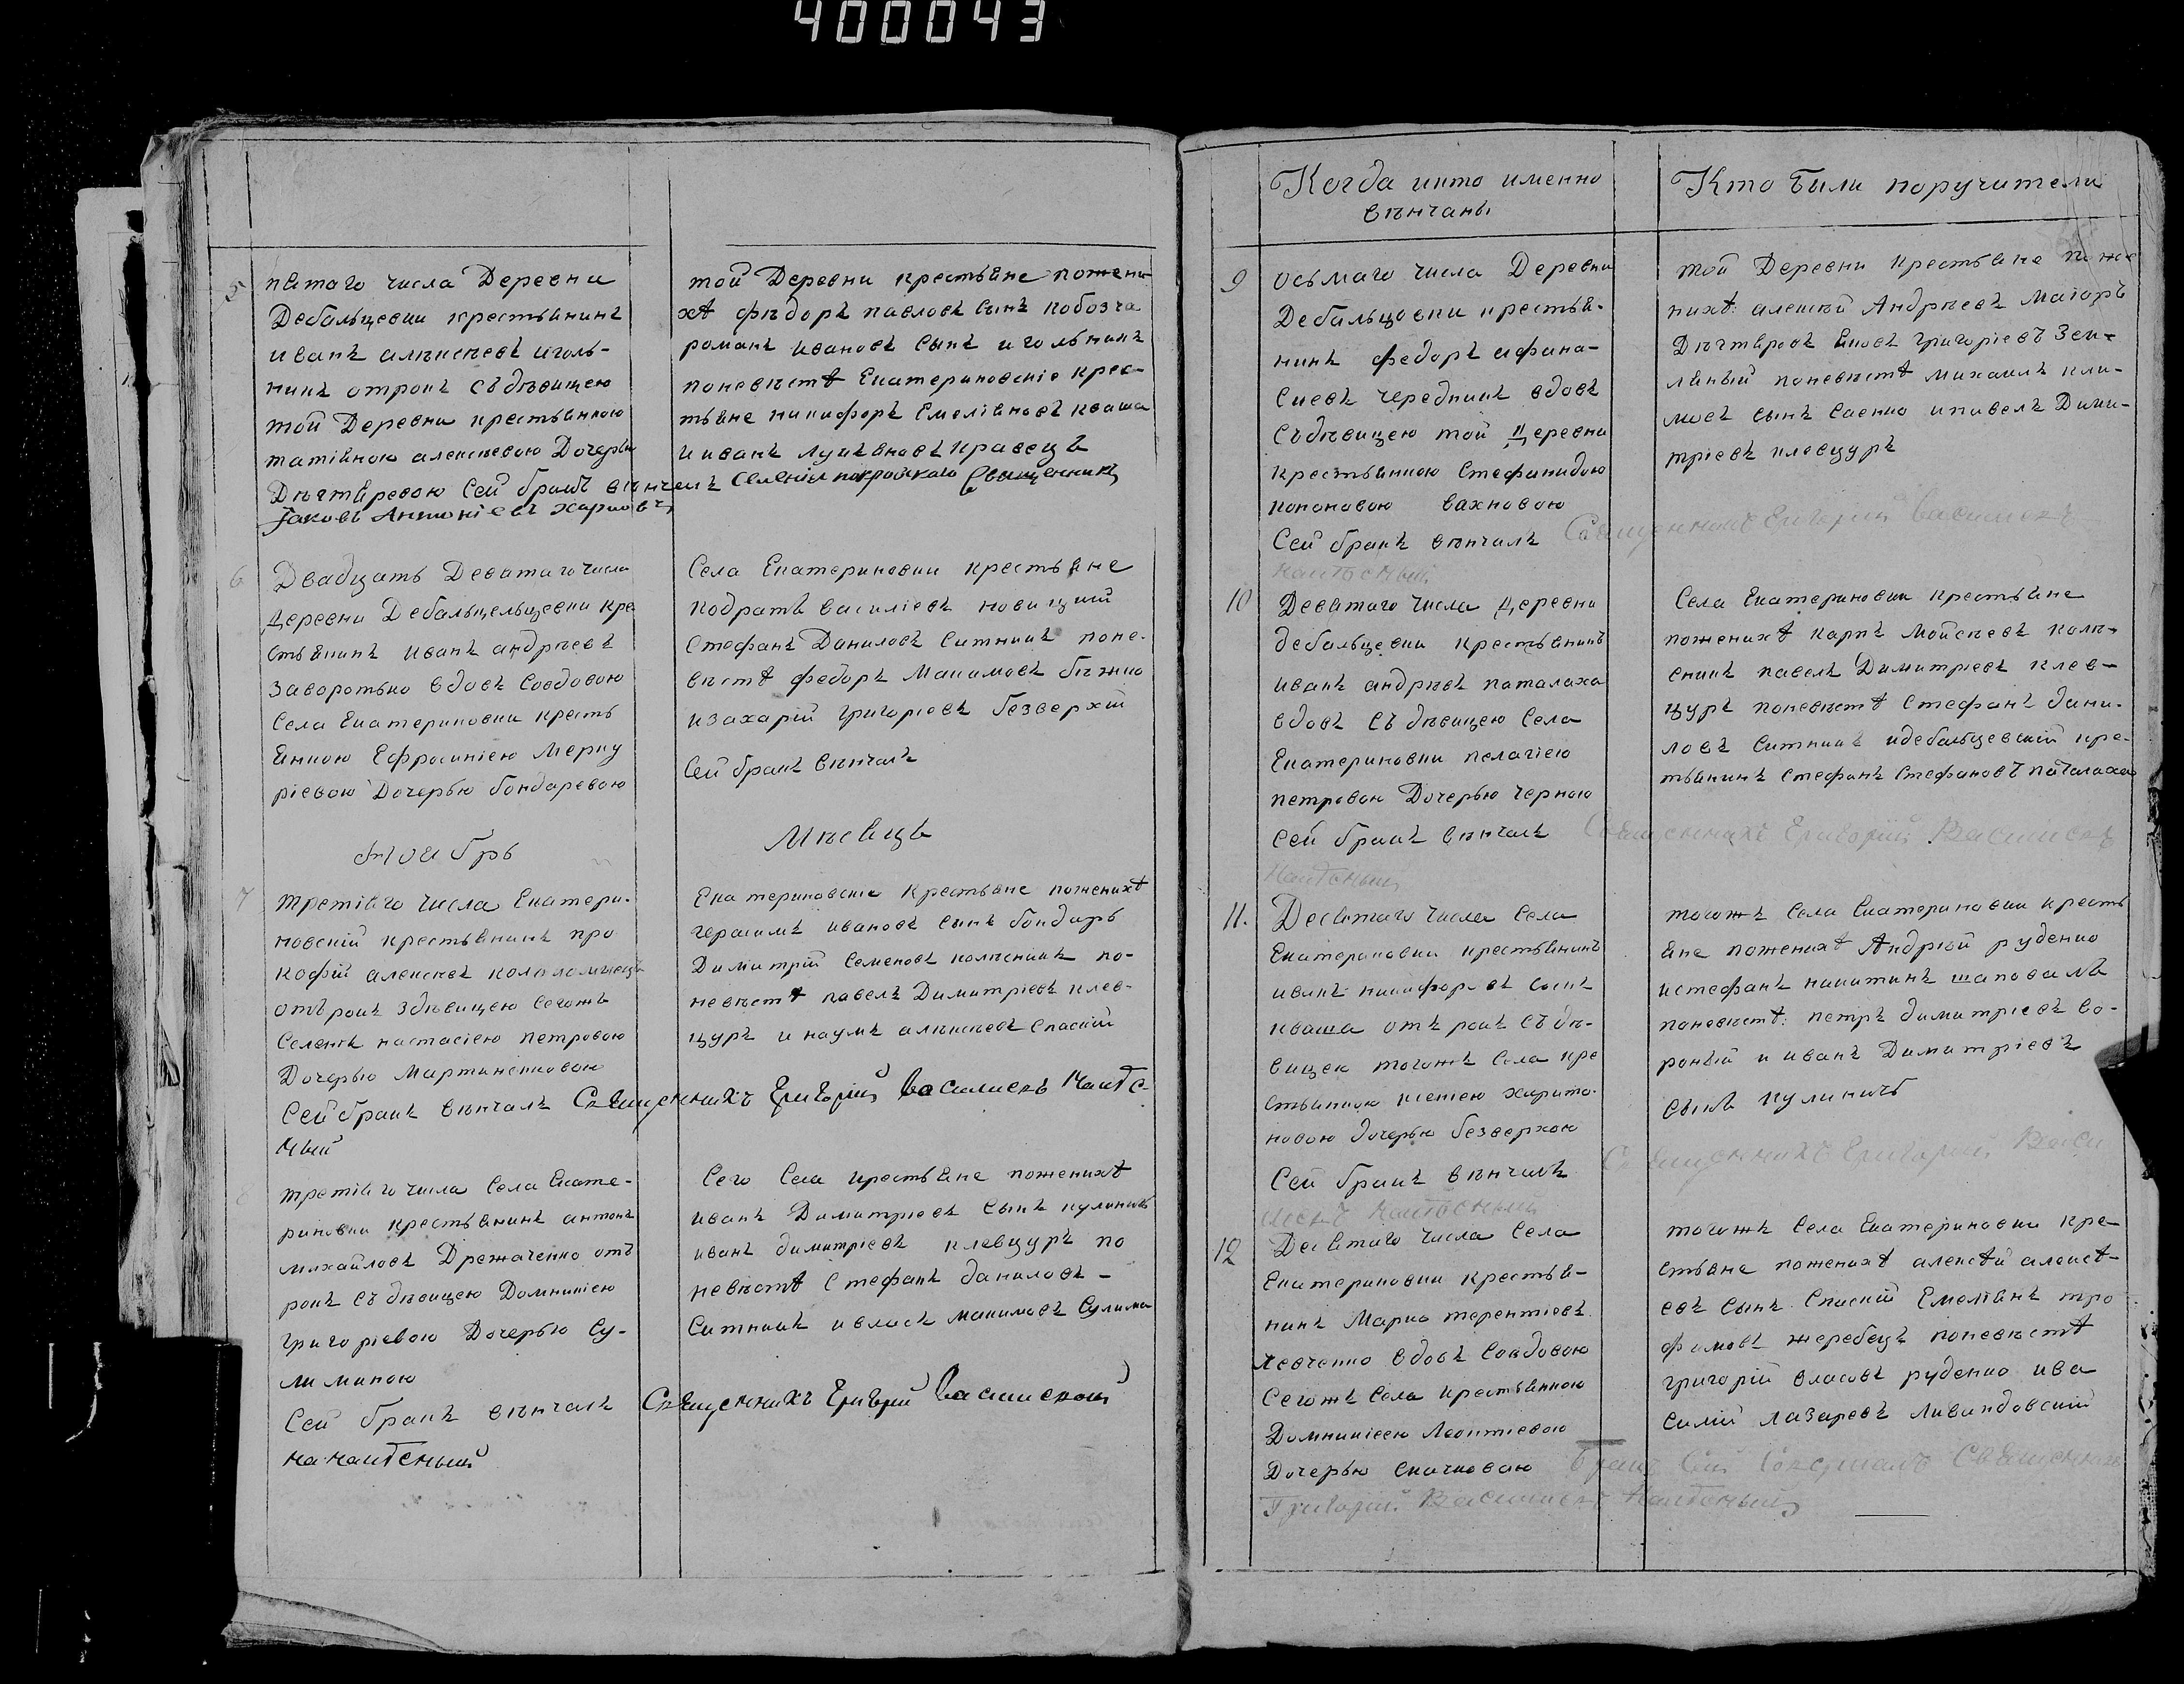 400043
5
пятаго числа Деревни
Дебальцевки крестьянинъ
иванъ алексѣевъ иголь-
никъ отрокъ съдѣвицею
той Деревни крестьянкою
татіяною алексѣевою Дочерью
Дѣгтяревою Сей бракъ вѣнчалъ Селенія покройскаго Священникъ
Іаковъ Антоніевъ харковъ
той Деревни крестьяне пожени
хѣ фѣдоръ павловъ сынъ кобозча
романъ ивановъ сынъ игольникъ
поневѣстѣ Екатериновскіе крес-
тьяне никифоръ Емеліяновъ кваша
и иванъ лукьяновъ кравецъ
6
Двадцать Девятаго числа
деревни Дебальцельцевки кре
стьянинъ иванъ андрѣевъ
заворотько вдовъ совдовою
Села Екатериновки кресть
янкою Ефросиніею Мерку
ріевою Дочерью бондаревою
Села Екатериновки крестьяне
кодратъ василіевъ новицкий
Стефанъ Даниловъ ситникъ поне-
вѣстѣ федоръ Макимовъ бѣжко
изахарій григоріевъ безверхій
Сей бракъ вѣнчалъ
ноябрь
Мѣсяцъ
7
третіяго числа Екатери-
новскій крестьянинъ про
кофій алексѣевъ коломыецъ
отърокъ здѣвицею Сегожъ
Селенія настасіею петровою
Дочерью Мартыненковою
Сей бракъ вѣнчалъ Священникъ Григорій Василиевъ Наитѣ-
ный
Екатериновскіе Крестьяне поженихѣ
герасимъ ивановъ сынъ бондарь
Димитрій Семеновъ колѣсникъ по-
невѣстѣ павелъ Димитріевъ клев-
цуръ и наумъ алѣксѣевъ Спаский
8
третіяго числа Села Екате-
риновки крестьянинъ антонъ
михайловъ Дрежаченко отъ
рокъ съ дѣвицею Домникіею
григоріевою Дочерью Су-
лимкою
Сей бракъ вѣнчалъ Священникъ Григорій Василиевъ
Сего Села крестьяне поженихѣ
иванъ Димитріевъ сынъ кулиничь
иванъ димитріевъ клевцуръ по
невѣстѣ Стефанъ даниловъ -
Ситникъ ивласъ макимовъ Сулима
Когда икто именно
вѣнчаны
Кто были поручители
9
осьмаго числа Деревни
Дебальцовки крестья-
нинъ федоръ афана-
сиевъ чередникъ вдовъ
съдѣвицею той Деревни
крестьянкою Стефанидою
кононовою вахновою
Сей бракъ вѣнчалъ Священникъ Григорій Василиевъ
той Деревни крестьяне поже
нихѣ: алексѣй Андрѣевъ Маторъ
Дѣгтяровъ яковъ григоріевъ Зем-
ляный поневѣстѣ михаилъ кли-
мовъ сынъ Саенко ипавелъ Дими-
тріевъ клевцуръ
10
Девятаго числа деревни
дебальцевки крестьянинъ
иванъ андрѣевъ паталаха
вдовъ съ дѣвицею Села
Екатериновки пелагіею
петровою Дочерью черною
Сей бракъ вѣнчалъ Священникъ Григорій Василиевъ
Села Екатериновки крестьяне
поженихѣ карпъ Мойсѣевъ колѣ-
сникъ павелъ Димитріевъ клев-
цуръ поневѣстѣ Стефанъ дани-
ловъ Ситникъ идебальцевскій кре-
тьянинъ Стефанъ Стефановъ паталаха
11.
Десятаго числа Села
Екатериновки крестьянинъ
иванъ никифоровъ сынъ
кваша отърокъ съдѣ-
вицею тогожъ села кре
стьянкою ксеніею харито-
новою дочерью безверхою
Сей бракъ вѣнчалъ Священникъ Григорій Васи
тогожъ Села Екатериновки кресть
яне поженихѣ Андрѣй руденко
истефанъ никитинъ шаповалъ
поневѣстѣ: петръ димитріевъ во-
роный и иванъ Димитріевъ
сынъ кулиничь
12
Десятаго числа Села
Екатериновки крестья-
нинъ Марко терентіевъ
левченко вдовъ совдовою
Сегожъ Села крестьянкою
Домникіею Леонтіевою
Дочерью скачковою Бракъ Сей Совершалъ Священникъ
Григорій Василиевъ
тогожъ Села Екатериновки кре-
стьяне поженихѣ алексѣй алексѣ-
евъ сынъ Спаскій Емеліянъ тро
фимовъ жеребецъ поневѣстѣ
григорій власовъ руденко ива
силій лазаревъ ливандовскій